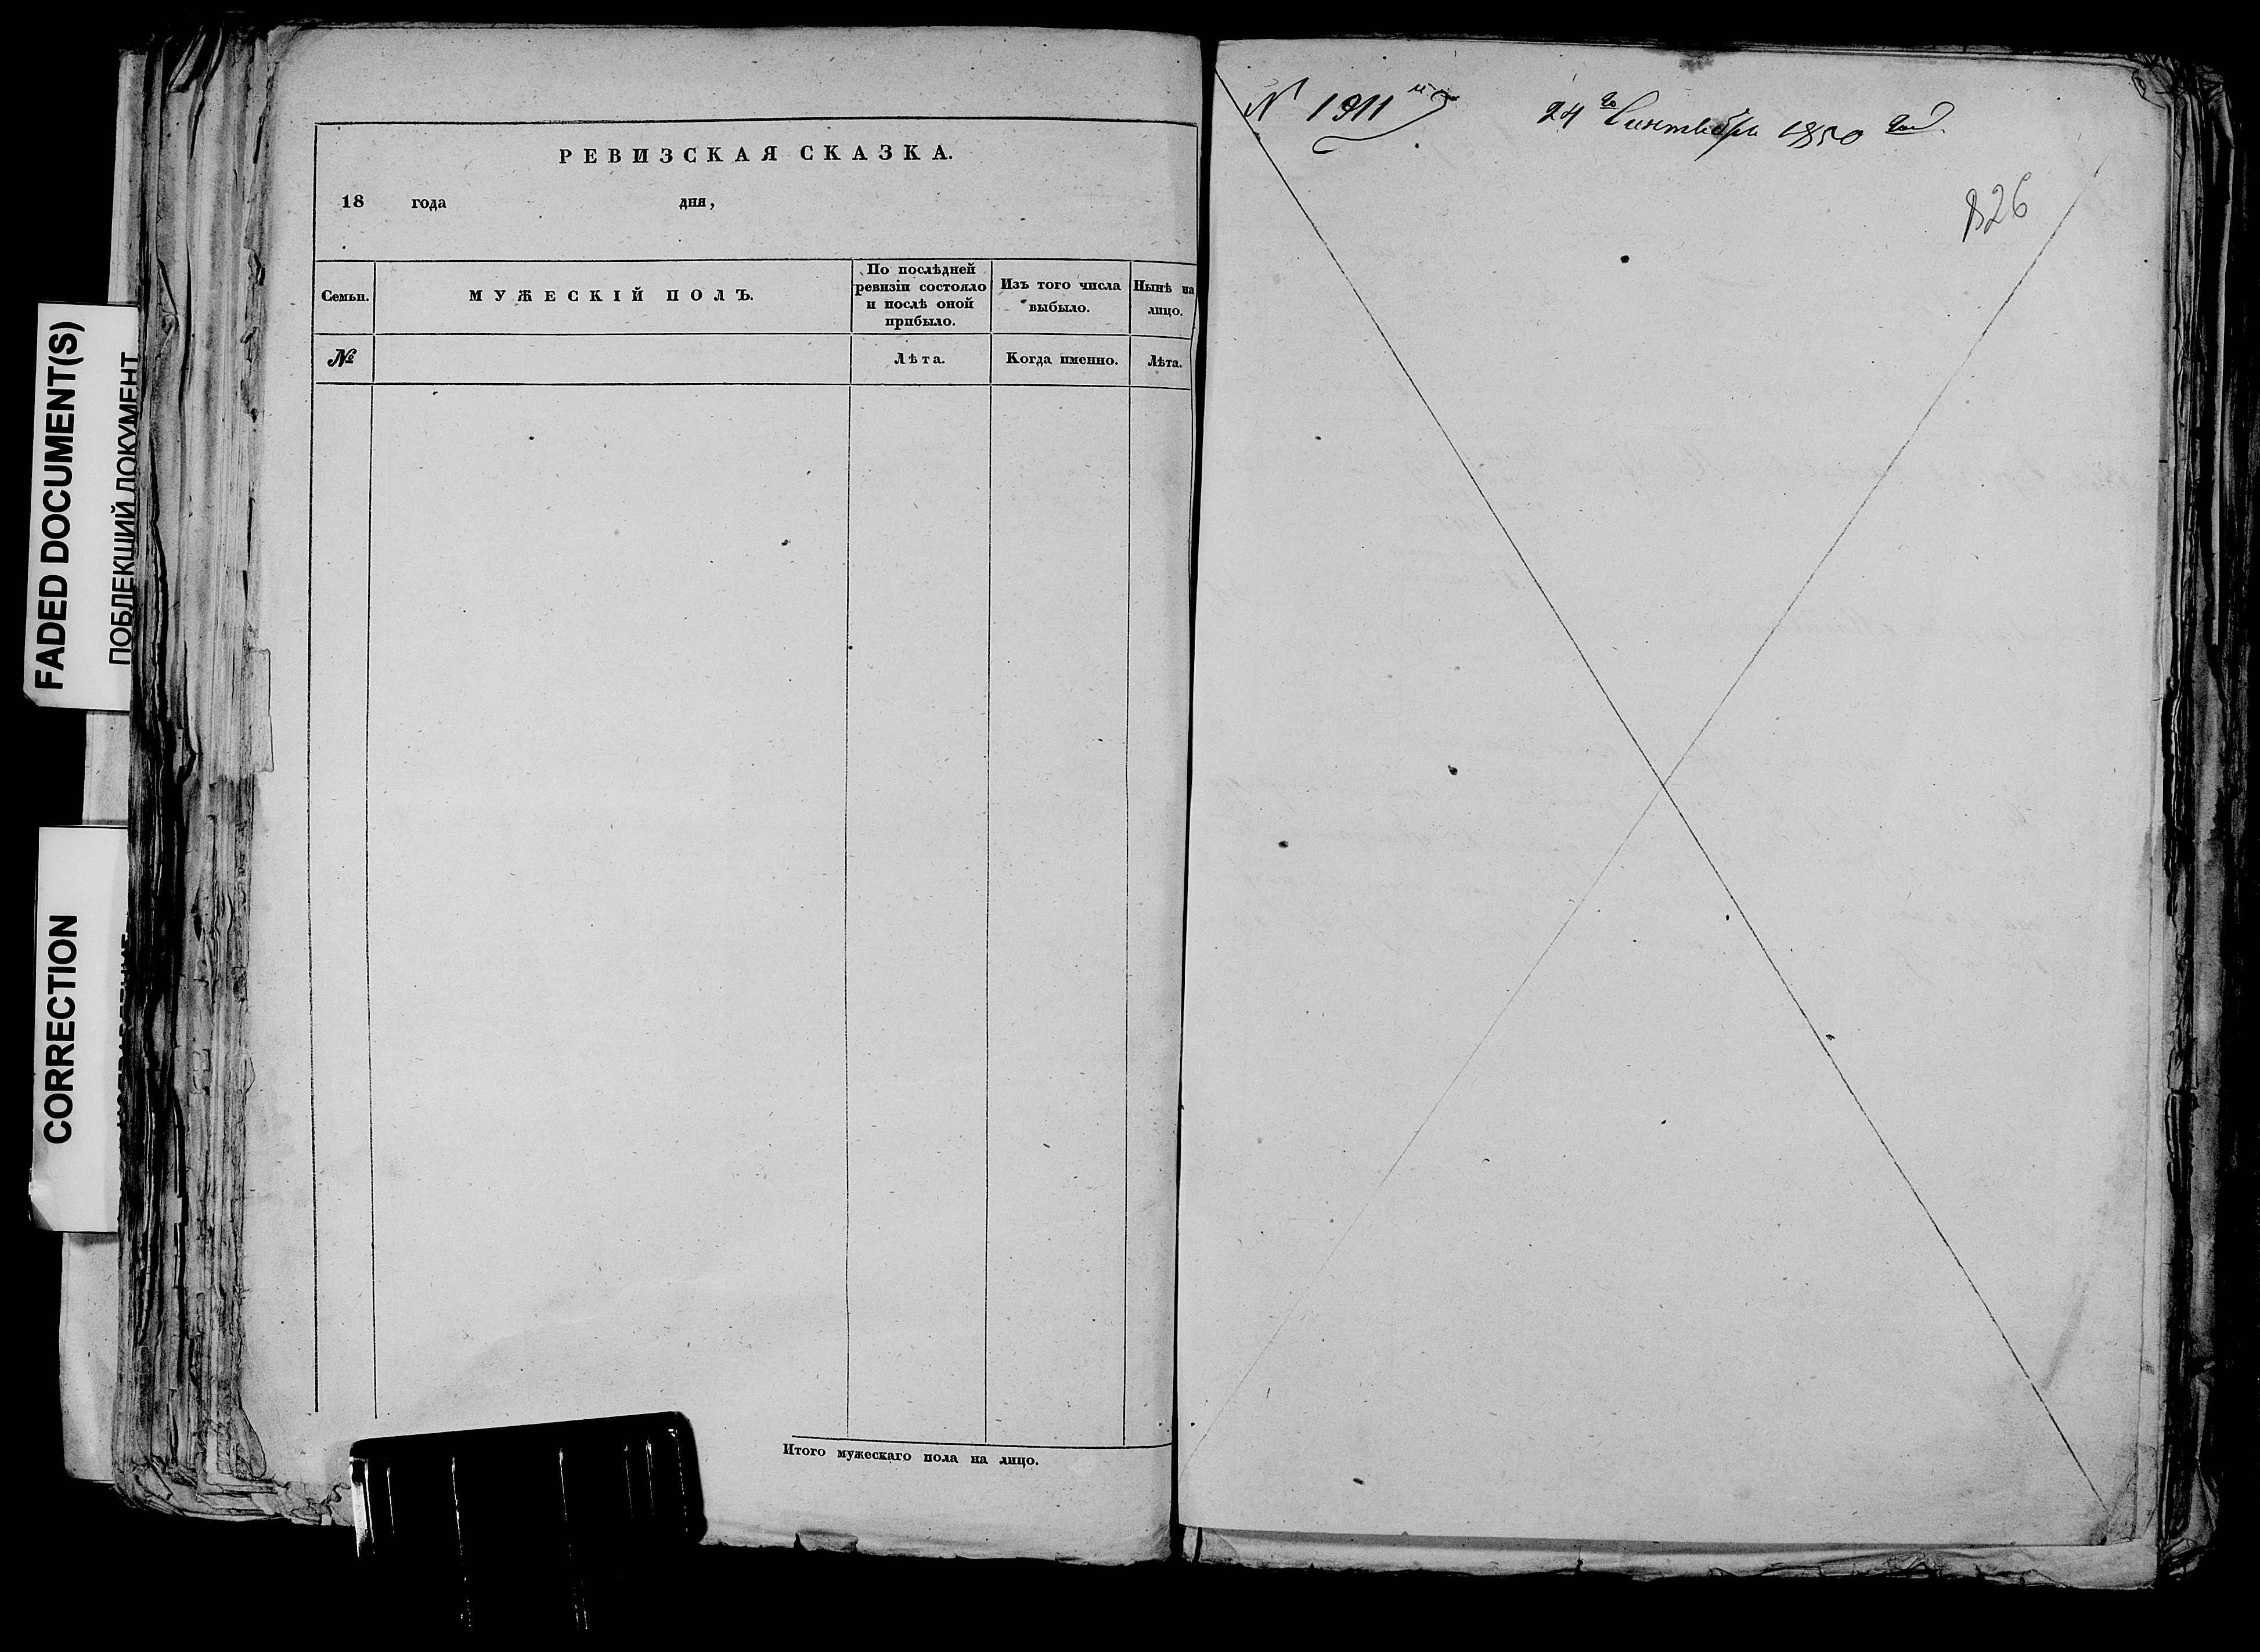 FADED DOCUMENT(S)
ПОБЛЕКШИЙ ДОКУМЕНТ
CORRECTION
РЕВИЗСКАЯ СКАЗКА.
18 года дня,
Семьи.
МУЖЕСКІЙ ПОЛЪ.
По послѣдней
ревизіи состояло
и послѣ оной
прибыло.
Изъ того числа
выбыло.
Нынѣ на
лицо.
№
Лѣта.
Когда именно.
Лѣта.
Итого мужескаго пола на лицо.
N 1911й
24го Сентября 1850 года
826